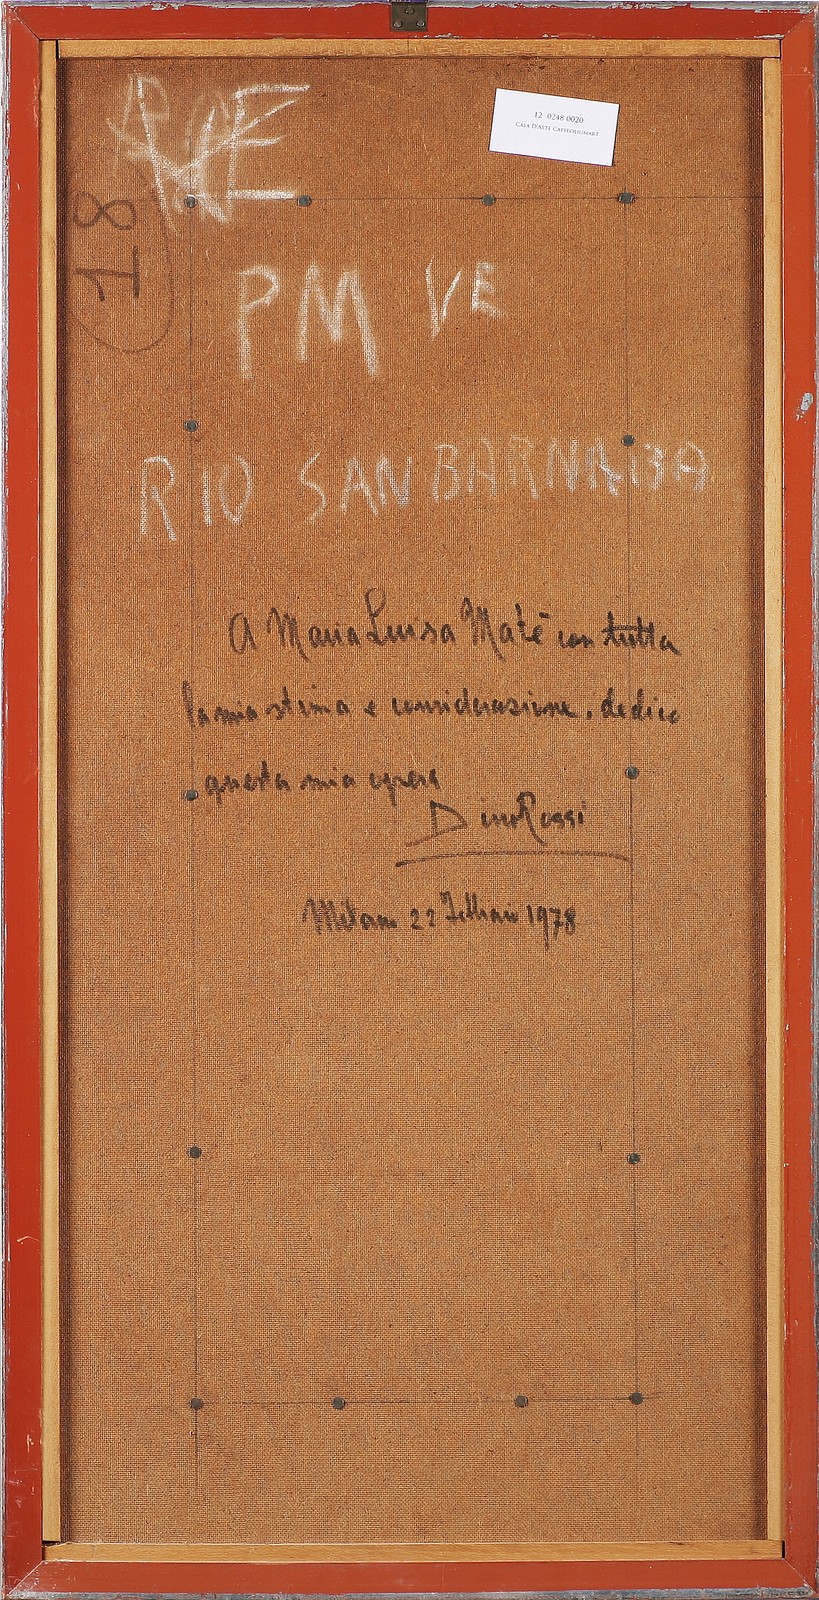 12 0248 0020
CASA D'ASTE CAPITOLIUMART
18
PM VE
RIO SAN BARNABA
A Maria Luisa Matè con tutta
la mia stima e considerazione, dedico
questa mia opera
Dino Rossi
Milano 22 Febbraio 1978